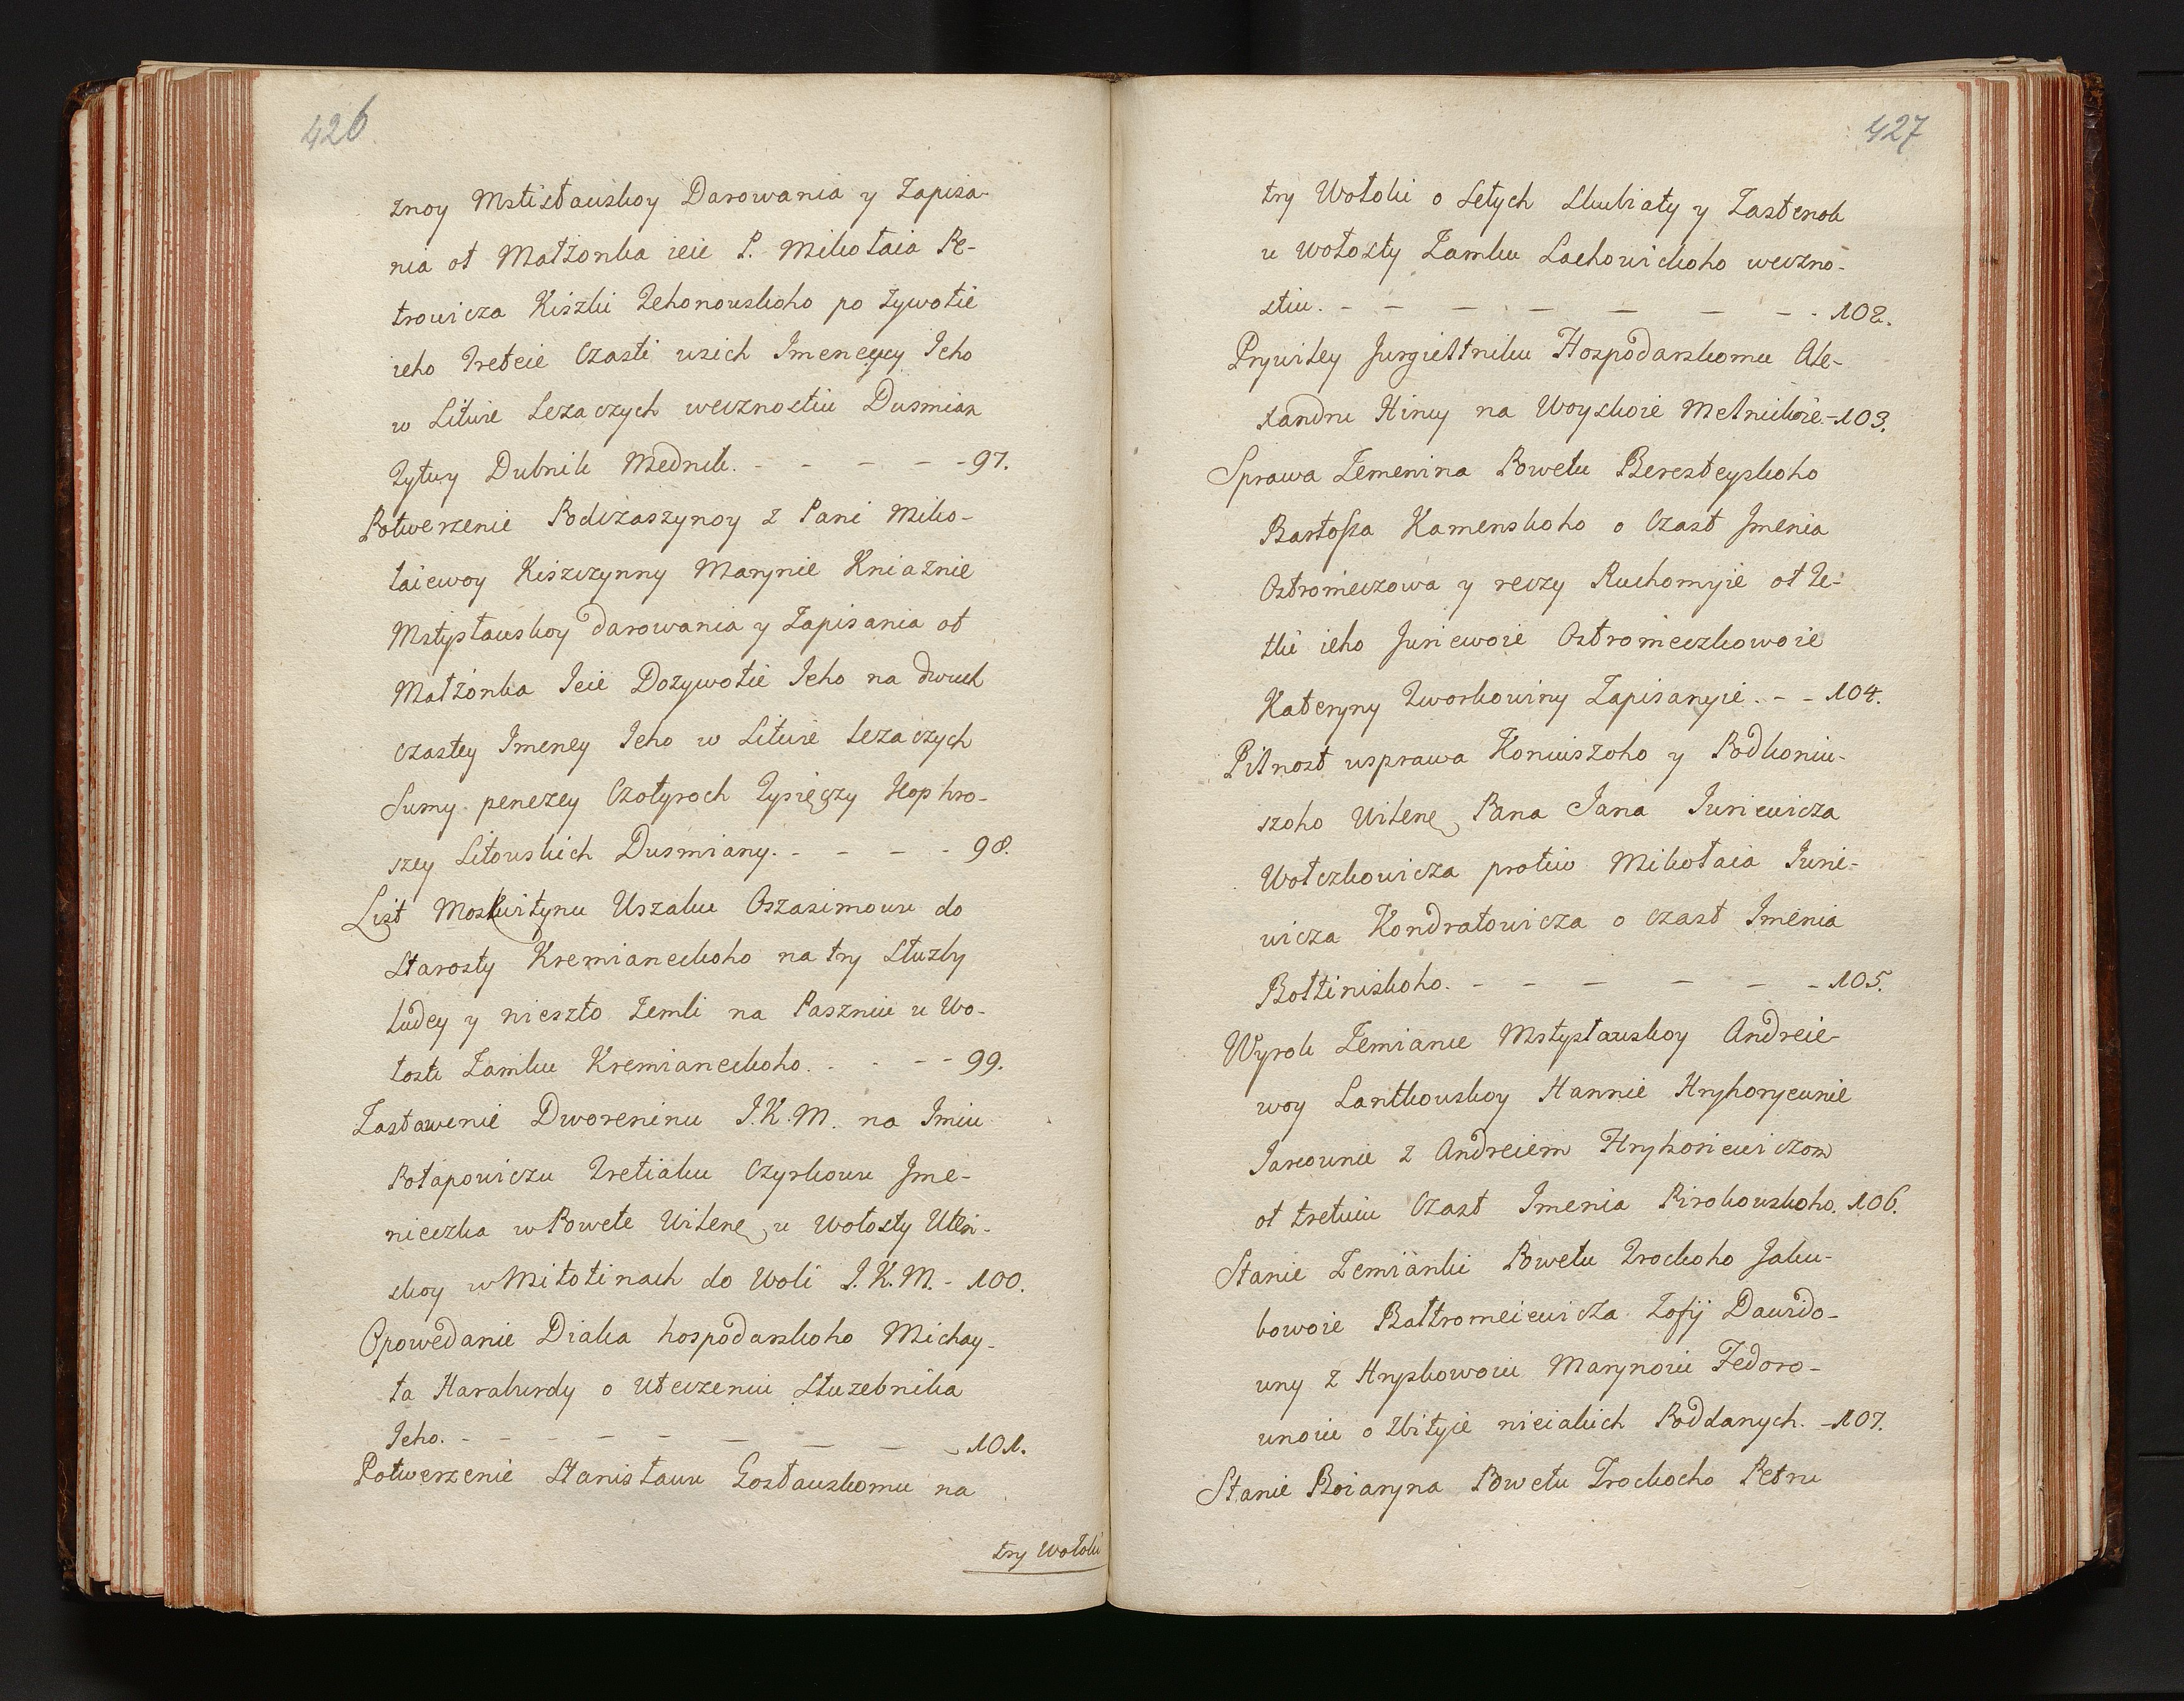 426
znoy Mstisławskoy Darowania y Zapisa-
nia ot Małżonka ieie P. Mikołaia Pe-
trowicza Kiszki Tehonowskoho po żywotie
ieho Treteie Czasti wsich Imeney Ieho
w Litwie Leżaczych wecznostiu Dusmian
Żytwy Dubnik Mednik. - - - - - 97.
Potwerzenie Podczaszynoy z Pani Miko-
łaiewoy Kiszczynny Marynie Kniaznie
Mstysławskoy darowania y Zapisania ot
Małżonka Ieie Dożywotie Ieho na dwuch
czastey Imeney Ieho w Litwie leżaczych
Sumy penezey Czotyroch Tysięczy Kop hro-
szey Litowskich Dusmiany. - - - - 98.
List Moskwitynu Uszaku Oszasimowu do
Starosty Kremianeckoho na try Służby
ludey y nieszto Zemli na Paszniu u Wo-
łosti Zamku Kremianeckoho. - - - 99.
Zastawenie Dworeninu J.K.M. na Imiu
Potapowiczu Tretiaku Czyrkowu Jme-
nieczka w Powete Wilene, u Wołosty Uten-
skoy w Miłotinach do Woli J.K.M. - 100.
Opowedanie Diaka hospodarskoho Michay-
ła Haraburdy o uteczeniu Służebnika
Jeho. - - - - - - - - 101.
Potwerzenie Stanisławu Gosławskomu na
try Wołoki
427
try Wołoki o Setych Skubiaty y Zastenok
u wołosty Zamku Lachowickoho weczno-
stiu. - - - - - - - 102.
Prywiley Jurgieltniku Hospodarskomu Ale-
xandru Hincy na Woyskoie Melnickoie. - 103.
Sprawa Zemenina Powetu Beresteyskoho
Bartosza Kamenskoho o Czast Jmenia
Ostromeczowa y reczy Ruchomyie ot Te-
tki ieho Juriewoie Ostromeczkowoie
Kateryny Tworkowiny Zapisanyie. - - 104.
Pilnost usprawa Koniuszoho y Podkoniu-
szoho Wilene, Pana Jana Juriewicza
Wołczkowicza protiw Mikołaia Jurie-
wicza Kondratowicza o czast Imenia
Bołtiniskoho. - - - - - - 105.
Wyrok Zemiance Mstysławskoy Andreie-
woy Lantkowskoy Hannie Hryhoryewnie
Jarcownie z Andreiem Hryhoriewiczom
ot tretuiu Czast Imenia Pirokowskoho. 106.
Stanie Zemianki Powetu Trockoho Jaku-
bowoie Bałtromeiewicza Zofij Dawido-
wny z Hryskowoiu Marynoiu Fedoro-
wnoiu o zbityie nieiakich Poddanych. - 107.
Stanie Boiaryna Powetu Trockocho Petru